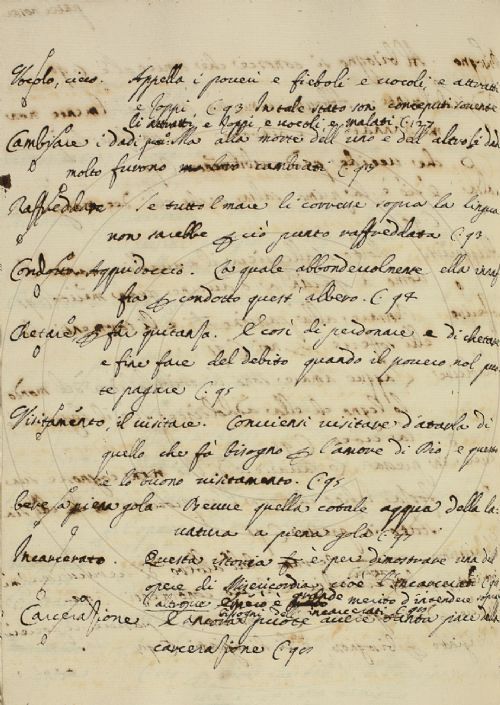 Vocolo, cieco. Appella i poveri e fieboli e vocoli, e attratti
e Zoppi. C. 93 In tale stato son conceputi sovente
li attratti, e Zoppi, e vocoli, e malati C. 127
Cambiare i dadi Ma alla morte dell'uno e dell'altro li dadi
molto furono cambiati C. 
Raffreddare Se tutto l'mare li corresse sopra la lingua
non sarebbe ciò punto raffreddata C. 93
Condotto Acquidoccio. La quale abbondevolmente ella innaf
fia condotto quest'albero. C. 94
Chetare far quitansa. E così di perdonare e di chetare
e fine fare del debito quando il povero nol puo
te pagare C. 95
Visitamento, il visitare. Conviensi visitare d'atarla di
quello che fà bisogno l'amore di Dio e questo
e lo buono visitamento. C. 95
bere a piena gola Bevve quella cotale acqua della la:
vatura a piena gola C. 
Incarcerato. Questa istoria è per dimostrare una del
opere di Misericordia, cioè l'Incarcerati C. 
grande merito d'intendere
incarcerati C. 
Carcerasione E ancora puote avere
carcerasione C.